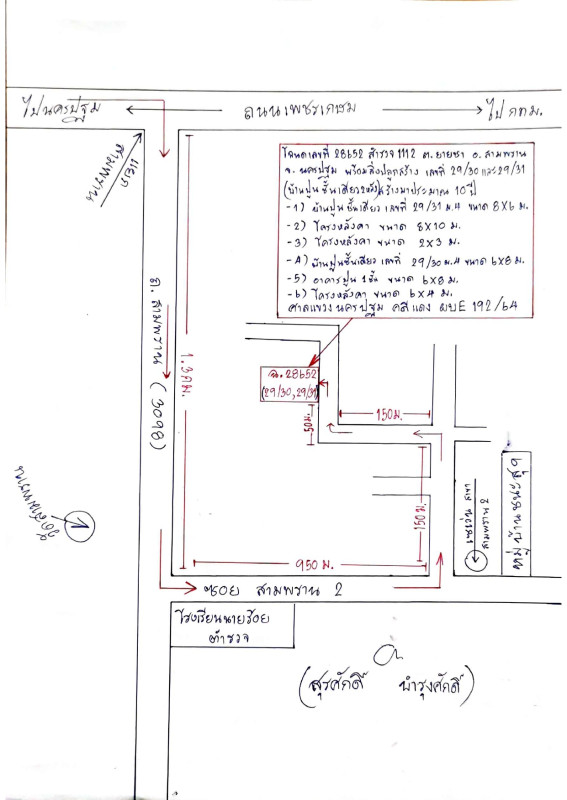 ไปนครปฐม
ถนนเพชรเกษม
ไป กทม.
แยก
สามพราน
โฉนดเลขที่ 28652 สำรวจ 1112 ต. ยายชา อ. สามพราน
จ. นครปฐม พร้อมสิ่งปลูกสร้าง เลขที่ 29/30 และ 29/31
(บ้านปูนชั้นเดียว 2 หลัง) สร้างมาประมาณ 10 ปี
-1) บ้านปูนชั้นเดียว เลขที่ 29/31 ม.4 ขนาด 8x6 ม.
-2) โครงหลังคา ขนาด 8x10 ม.
-3) โครงหลังคา ขนาด 2x3 ม.
-4) บ้านปูนชั้นเดียว เลขที่ 29/30 ม.4 ขนาด 6x8 ม.
-5) อาคารปูน 1 ชั้น ขนาด 6x8 ม.
-6) โครงหลังคา ขนาด 6x4 ม.
ศาลแขวงนครปฐม คดีแดง ผบE 192/64
ถ. สามพราน (3098)
1.3 กม.
ฉ. 28652
(29/30, 29/31)
50 ม.
150 ม.
150 ม.
950 ม.
สามพราน 2
วัดสามพราน
ซอย สามพราน 2
โรงเรียนนายร้อย
ตำรวจ
(สุรศักดิ์ บำรุงศักดิ์)